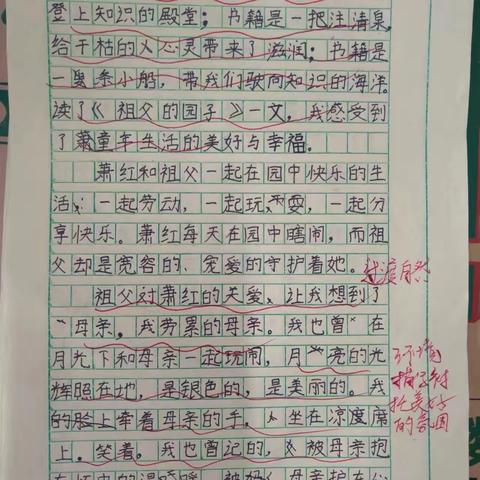 登上知识的殿堂；书籍是一把注清泉，
给干枯的人心灵带来了滋润；书籍是
一只条小船，带我们驶向知识的海洋。
读了《祖父的园子》一文，我感受到
了萧童年生活的美好与幸福。
萧红和祖父一起在园中快乐的生
活，一起劳动，一起玩耍，一起分
享快乐。萧红每天在园中瞎闹，而祖
父却是宽容的、宠爱的守护着她。
过渡自然
祖父对萧红的关爱、让我想到了
母亲，我劳累的母亲。我也曾在
月光下和母亲一起玩闹，月亮的光
辉照在地，是银色的，是美丽的。我
的脸上牵着母亲的手，坐在凉席
上。笑着。我也曾记的，被母亲抱
环境
描写衬
托美好
的氛围
在怀中的温暖